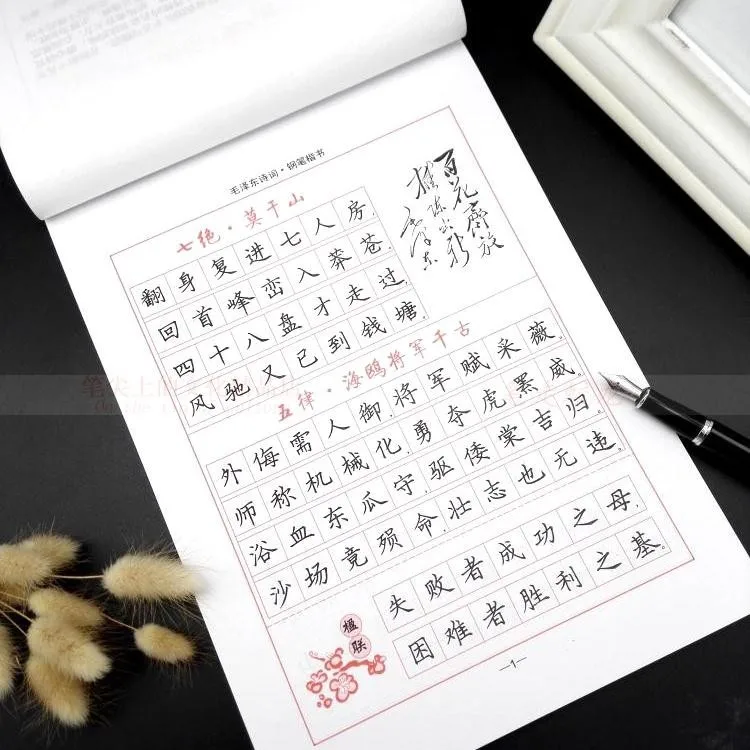 毛泽东诗词·钢笔楷书
百花齐放
推陈出新
毛泽东
七绝·莫干山
翻身复进七人房，
回首峰峦入莽苍。
四十八盘才走过，
风驰又已到钱塘。
五律·海鸥将军千古
外侮需人御，将军赋采薇。
师称机械化，勇夺虎罴威。
浴血东瓜守，驱倭棠吉归。
沙场竟殒命，壮志也无违。
楹联
失败者成功之母，
困难者胜利之基。
—1—